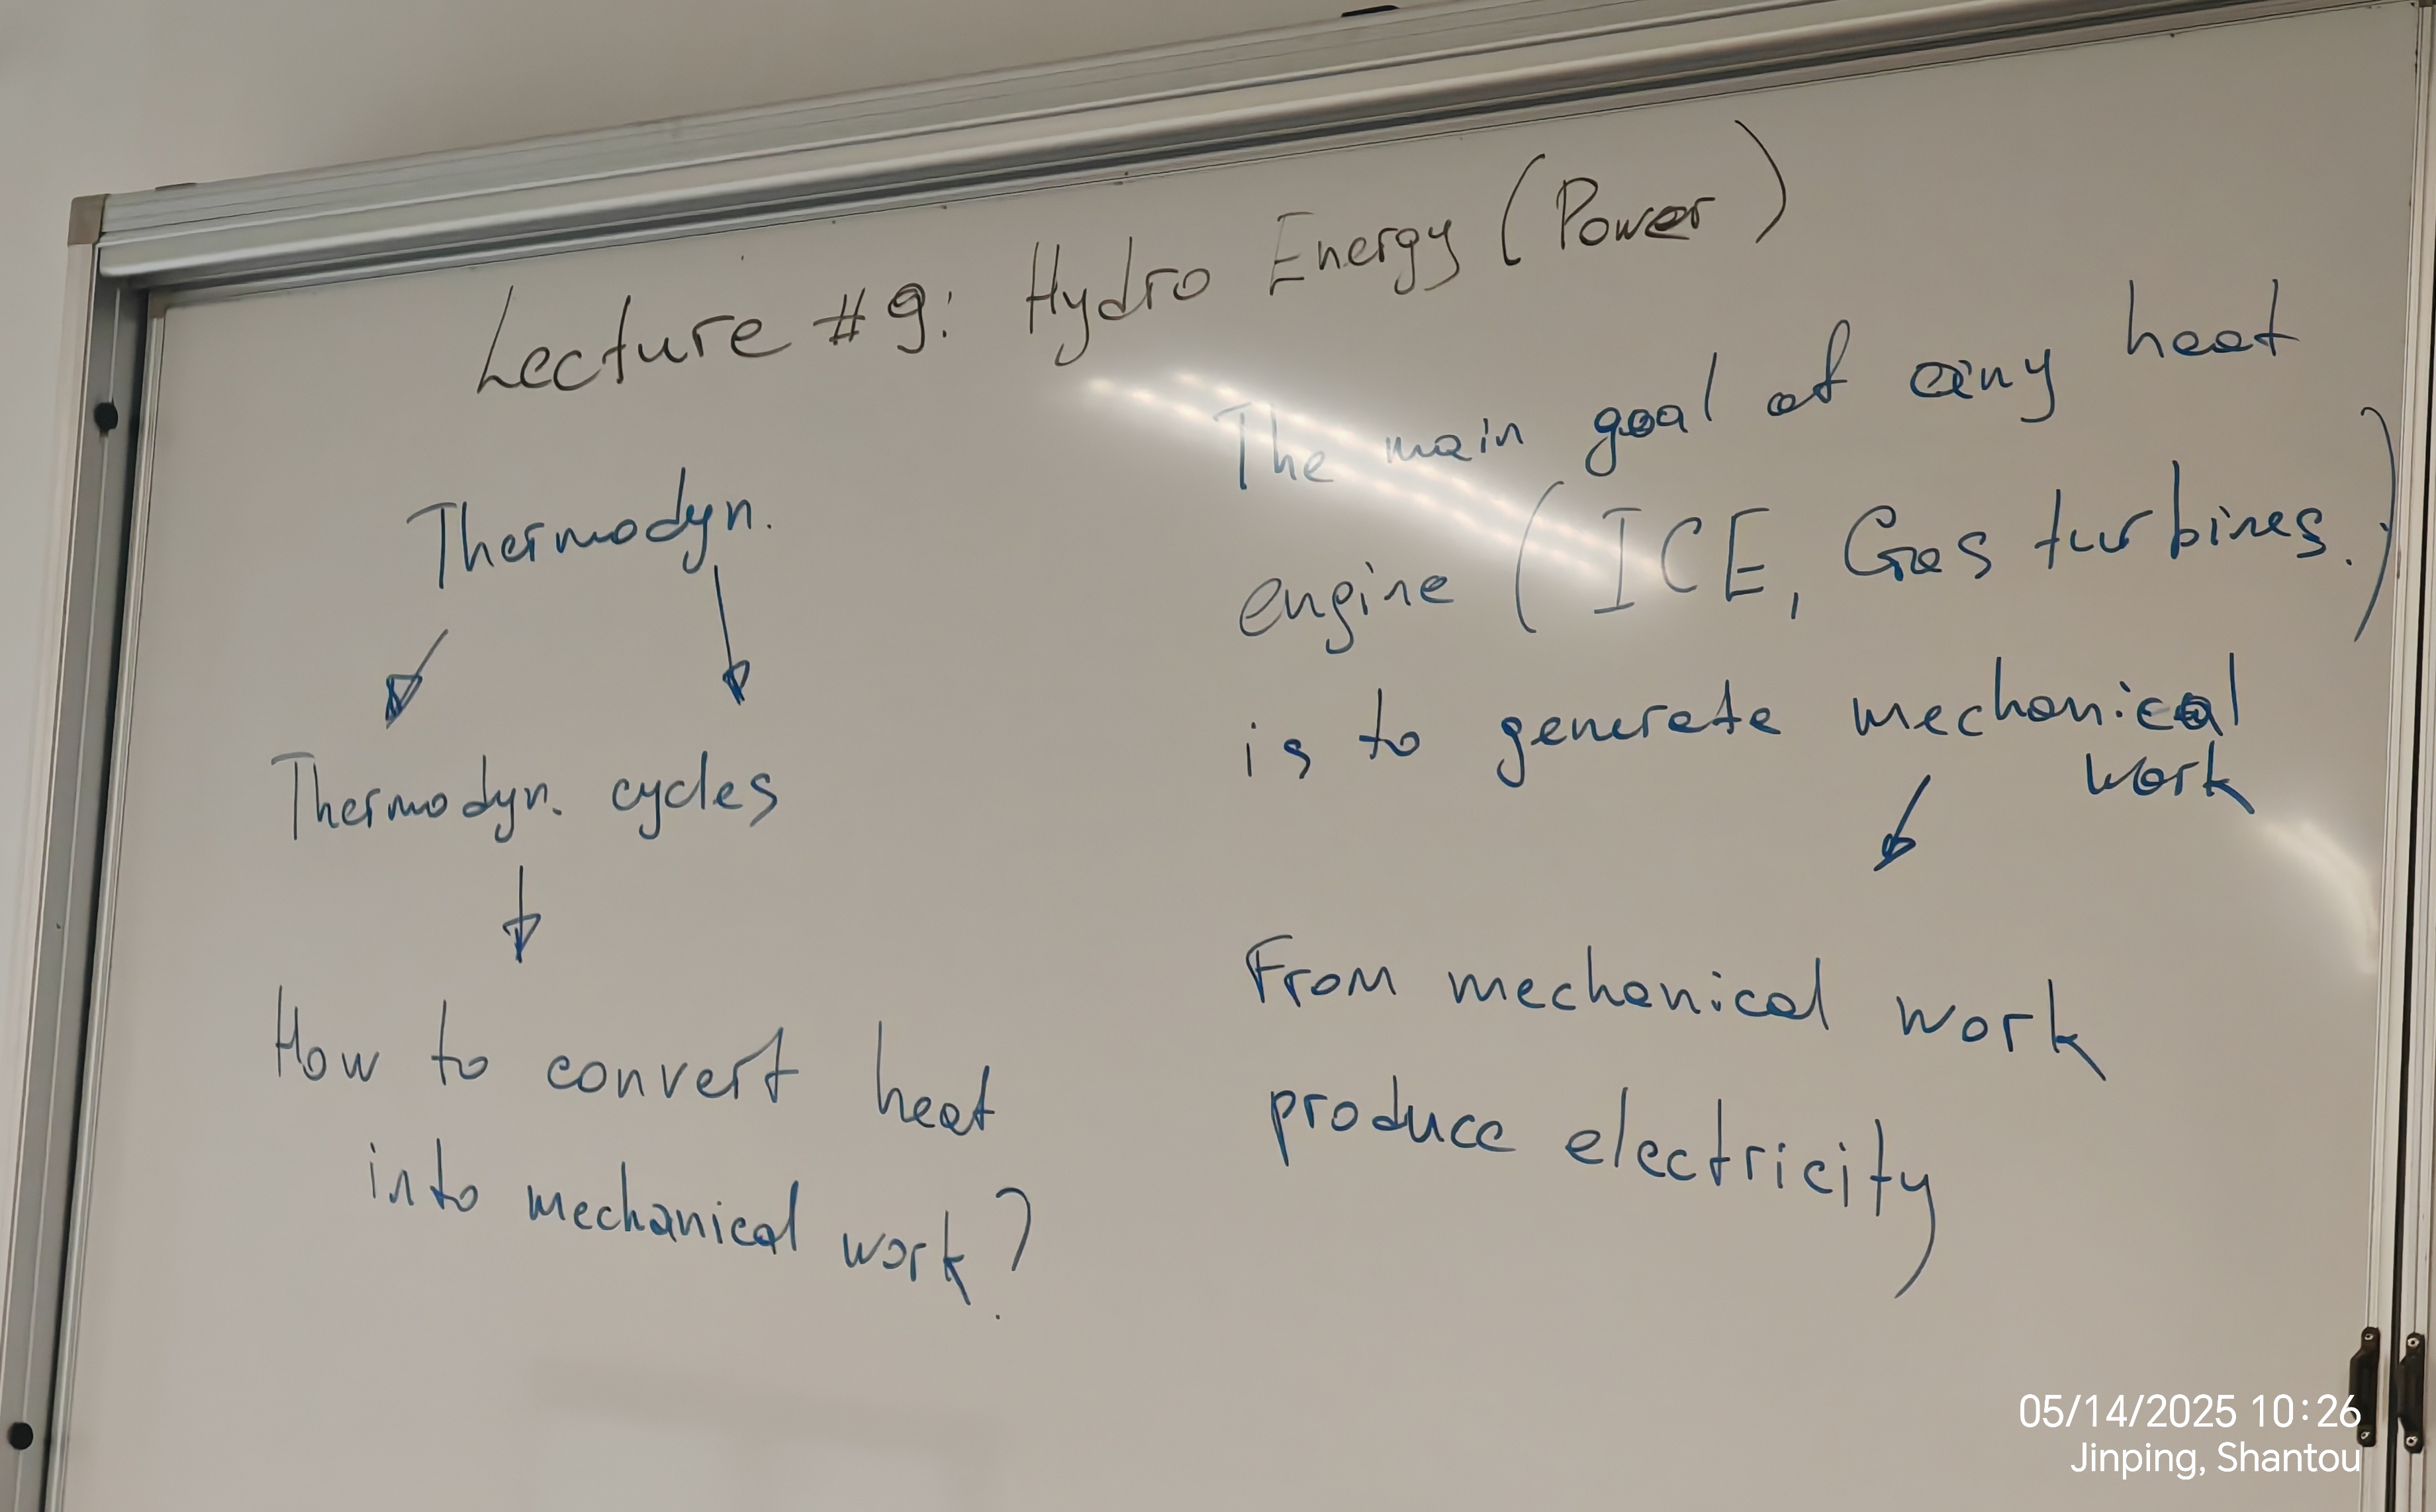 Lecture #9: Hydro Energy (Power)
Thermodyn.
Thermodyn. cycles
How to convert heat
into mechanical work?
The main goal of any heat
engine (ICE, Gas turbines.)
is to generate mechanical
work
From mechanical work
produce electricity
05/14/2025 10:26
Jinping, Shantou